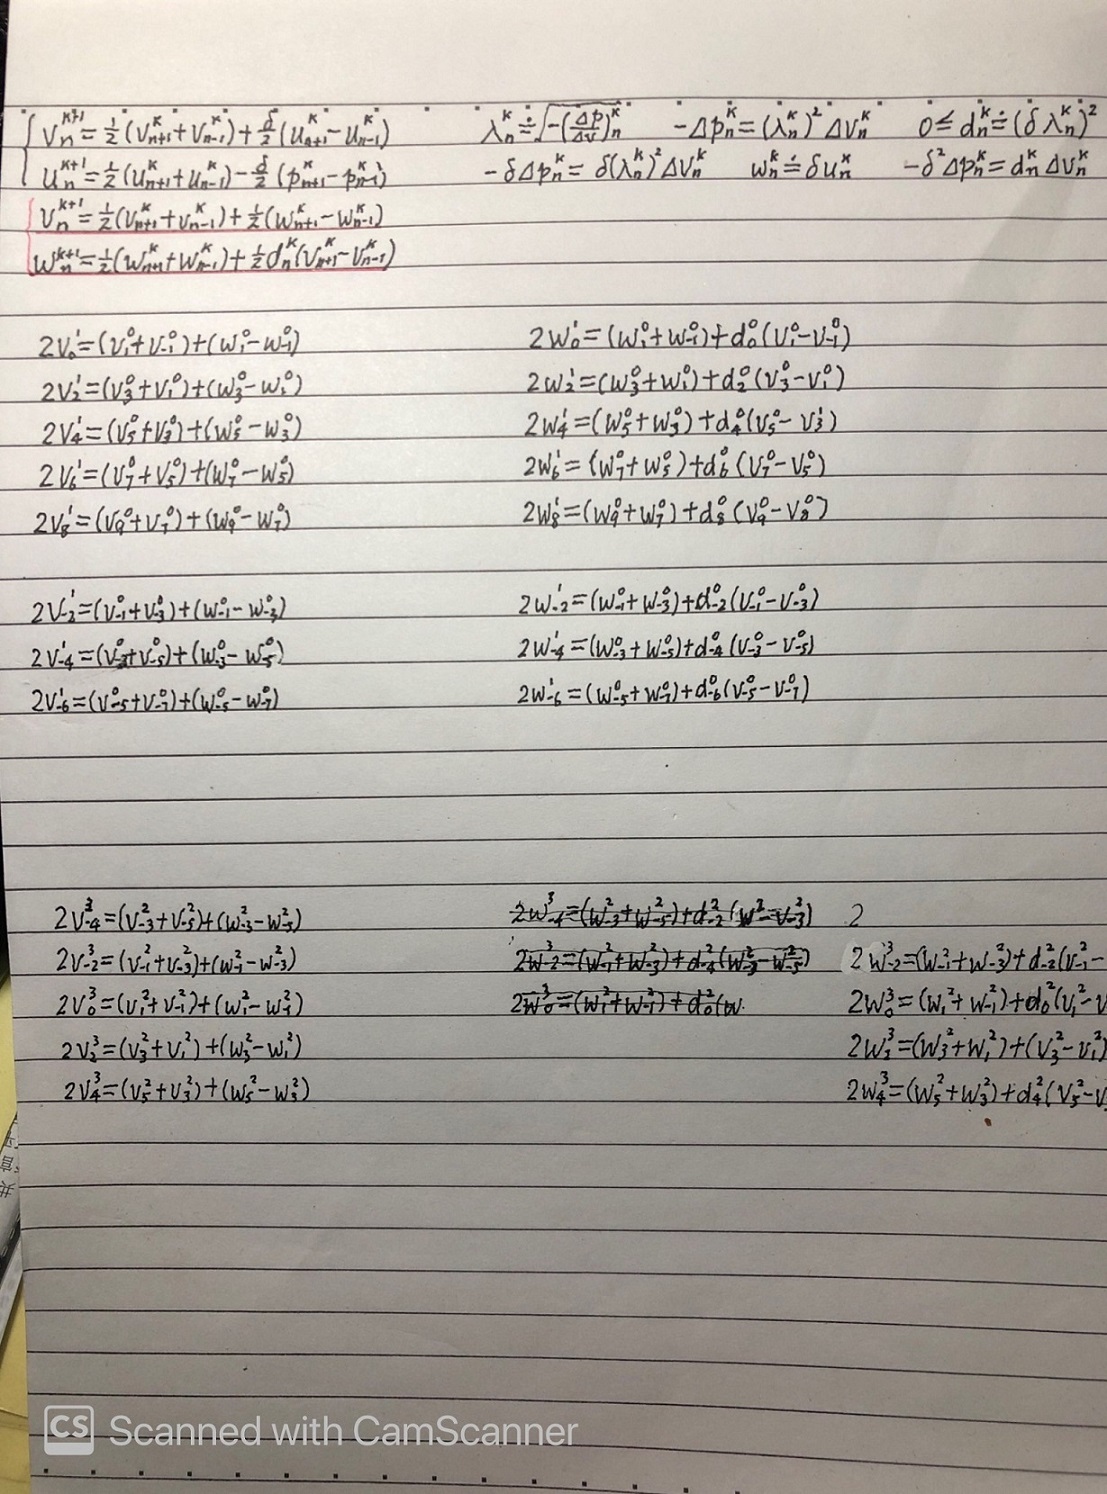 v_n^{k+1} = ½(v_{n+1}^k + v_{n-1}^k) + δ/2 (u_{n+1}^k - u_{n-1}^k)   λ_n^k ≐ √(-(Δp/Δv)_n^k)   -Δp_n^k = (λ_n^k)² Δv_n^k   0 ≤ d_n^k ≐ (δ λ_n^k)²
u_n^{k+1} = ½(u_{n+1}^k + u_{n-1}^k) - δ/2 (p_{n+1}^k - p_{n-1}^k)   -δΔp_n^k = δ(λ_n^k)² Δv_n^k   w_n^k ≐ δu_n^k   -δ²Δp_n^k = d_n^k Δv_n^k
v_n^{k+1} = ½(v_{n+1}^k + v_{n-1}^k) + ½(w_{n+1}^k - w_{n-1}^k)
w_n^{k+1} = ½(w_{n+1}^k + w_{n-1}^k) + ½ d_n^k (v_{n+1}^k - v_{n-1}^k)
2v_0^1 = (v_1^0 + v_{-1}^0) + (w_1^0 - w_{-1}^0)   2w_0^1 = (w_1^0 + w_{-1}^0) + d_0^0 (v_1^0 - v_{-1}^0)
2v_2^1 = (v_3^0 + v_1^0) + (w_3^0 - w_1^0)   2w_2^1 = (w_3^0 + w_1^0) + d_2^0 (v_3^0 - v_1^0)
2v_4^1 = (v_5^0 + v_3^0) + (w_5^0 - w_3^0)   2w_4^1 = (w_5^0 + w_3^0) + d_4^0 (v_5^0 - v_3^1)
2v_6^1 = (v_7^0 + v_5^0) + (w_7^0 - w_5^0)   2w_6^1 = (w_7^0 + w_5^0) + d_6^0 (v_7^0 - v_5^0)
2v_8^1 = (v_9^0 + v_7^0) + (w_9^0 - w_7^0)   2w_8^1 = (w_9^0 + w_7^0) + d_8^0 (v_9^0 - v_8^0)
2v_{-2}^1 = (v_{-1}^0 + v_{-3}^0) + (w_{-1}^0 - w_{-3}^0)   2w_{-2}^1 = (w_{-1}^0 + w_{-3}^0) + d_{-2}^0 (v_{-1}^0 - v_{-3}^0)
2v_{-4}^1 = (v_{-3}^0 + v_{-5}^0) + (w_{-3}^0 - w_{-5}^0)   2w_{-4}^1 = (w_{-3}^0 + w_{-5}^0) + d_{-4}^0 (v_{-3}^0 - v_{-5}^0)
2v_{-6}^1 = (v_{-5}^0 + v_{-7}^0) + (w_{-5}^0 - w_{-7}^0)   2w_{-6}^1 = (w_{-5}^0 + w_{-7}^0) + d_{-6}^0 (v_{-5}^0 - v_{-7}^0)
2v_{-4}^3 = (v_{-3}^2 + v_{-5}^2) + (w_{-3}^2 - w_{-5}^2)   2
2v_{-2}^3 = (v_{-1}^2 + v_{-3}^2) + (w_{-1}^2 - w_{-3}^2)   2w_{-2}^3 = (w_{-1}^2 + w_{-3}^2) + d_{-2}^2 (v_{-1}^2 -
2v_0^3 = (v_1^2 + v_{-1}^2) + (w_1^2 - w_{-1}^2)   2w_0^3 = (w_1^2 + w_{-1}^2) + d_0^2 (v_1^2 - v
2v_2^3 = (v_3^2 + v_1^2) + (w_3^2 - w_1^2)   2w_2^3 = (w_3^2 + w_1^2) + (v_3^2 - v_1^2)
2v_4^3 = (v_5^2 + v_3^2) + (w_5^2 - w_3^2)   2w_4^3 = (w_5^2 + w_3^2) + d_4^2 (v_5^2 - v
CS Scanned with CamScanner